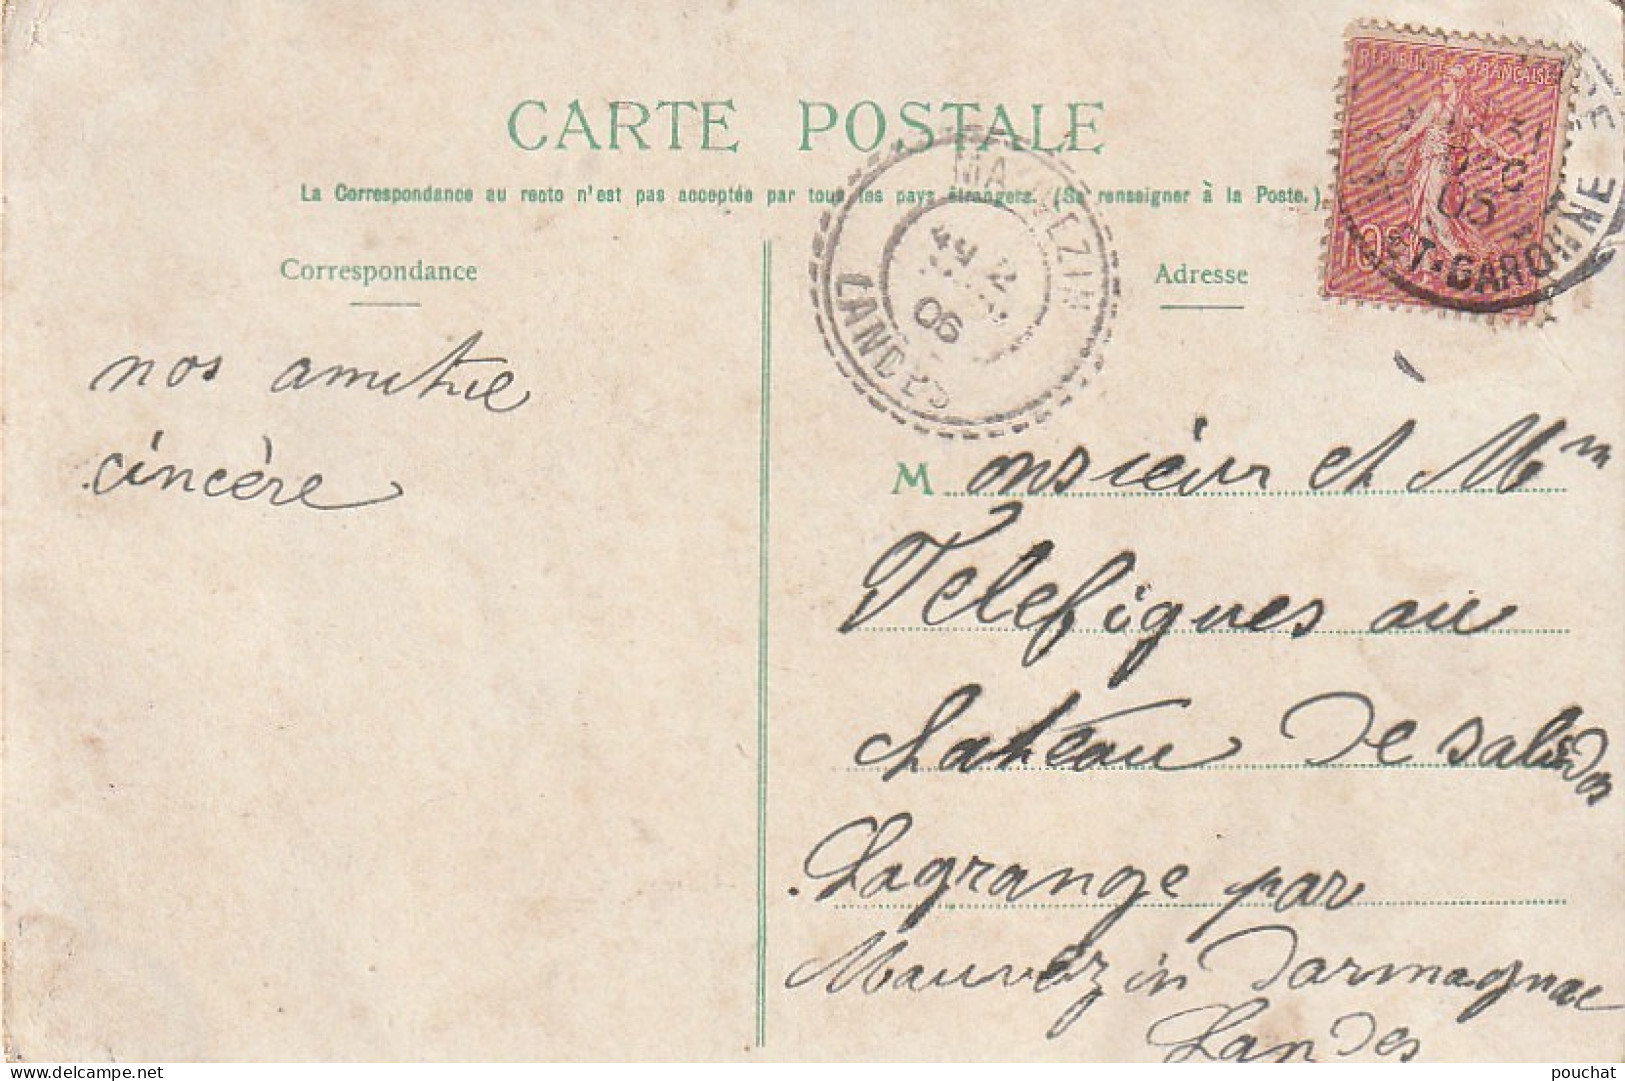 CARTE POSTALE
La Correspondance au recto n'est pas acceptée par tous les pays étrangers. (Se renseigner à la Poste.)
Correspondance
Adresse
REPUBLIQUE FRANÇAISE
10
31
DEC
05
ET-GARONNE
MAUVEZIN
2
06
LANDES
nos amitie
cincère
Monsieur et Mm
Telefigues au
chateau de salesdos
Lagrange par
Mauvezin Darmagnac
Landes
pouchat